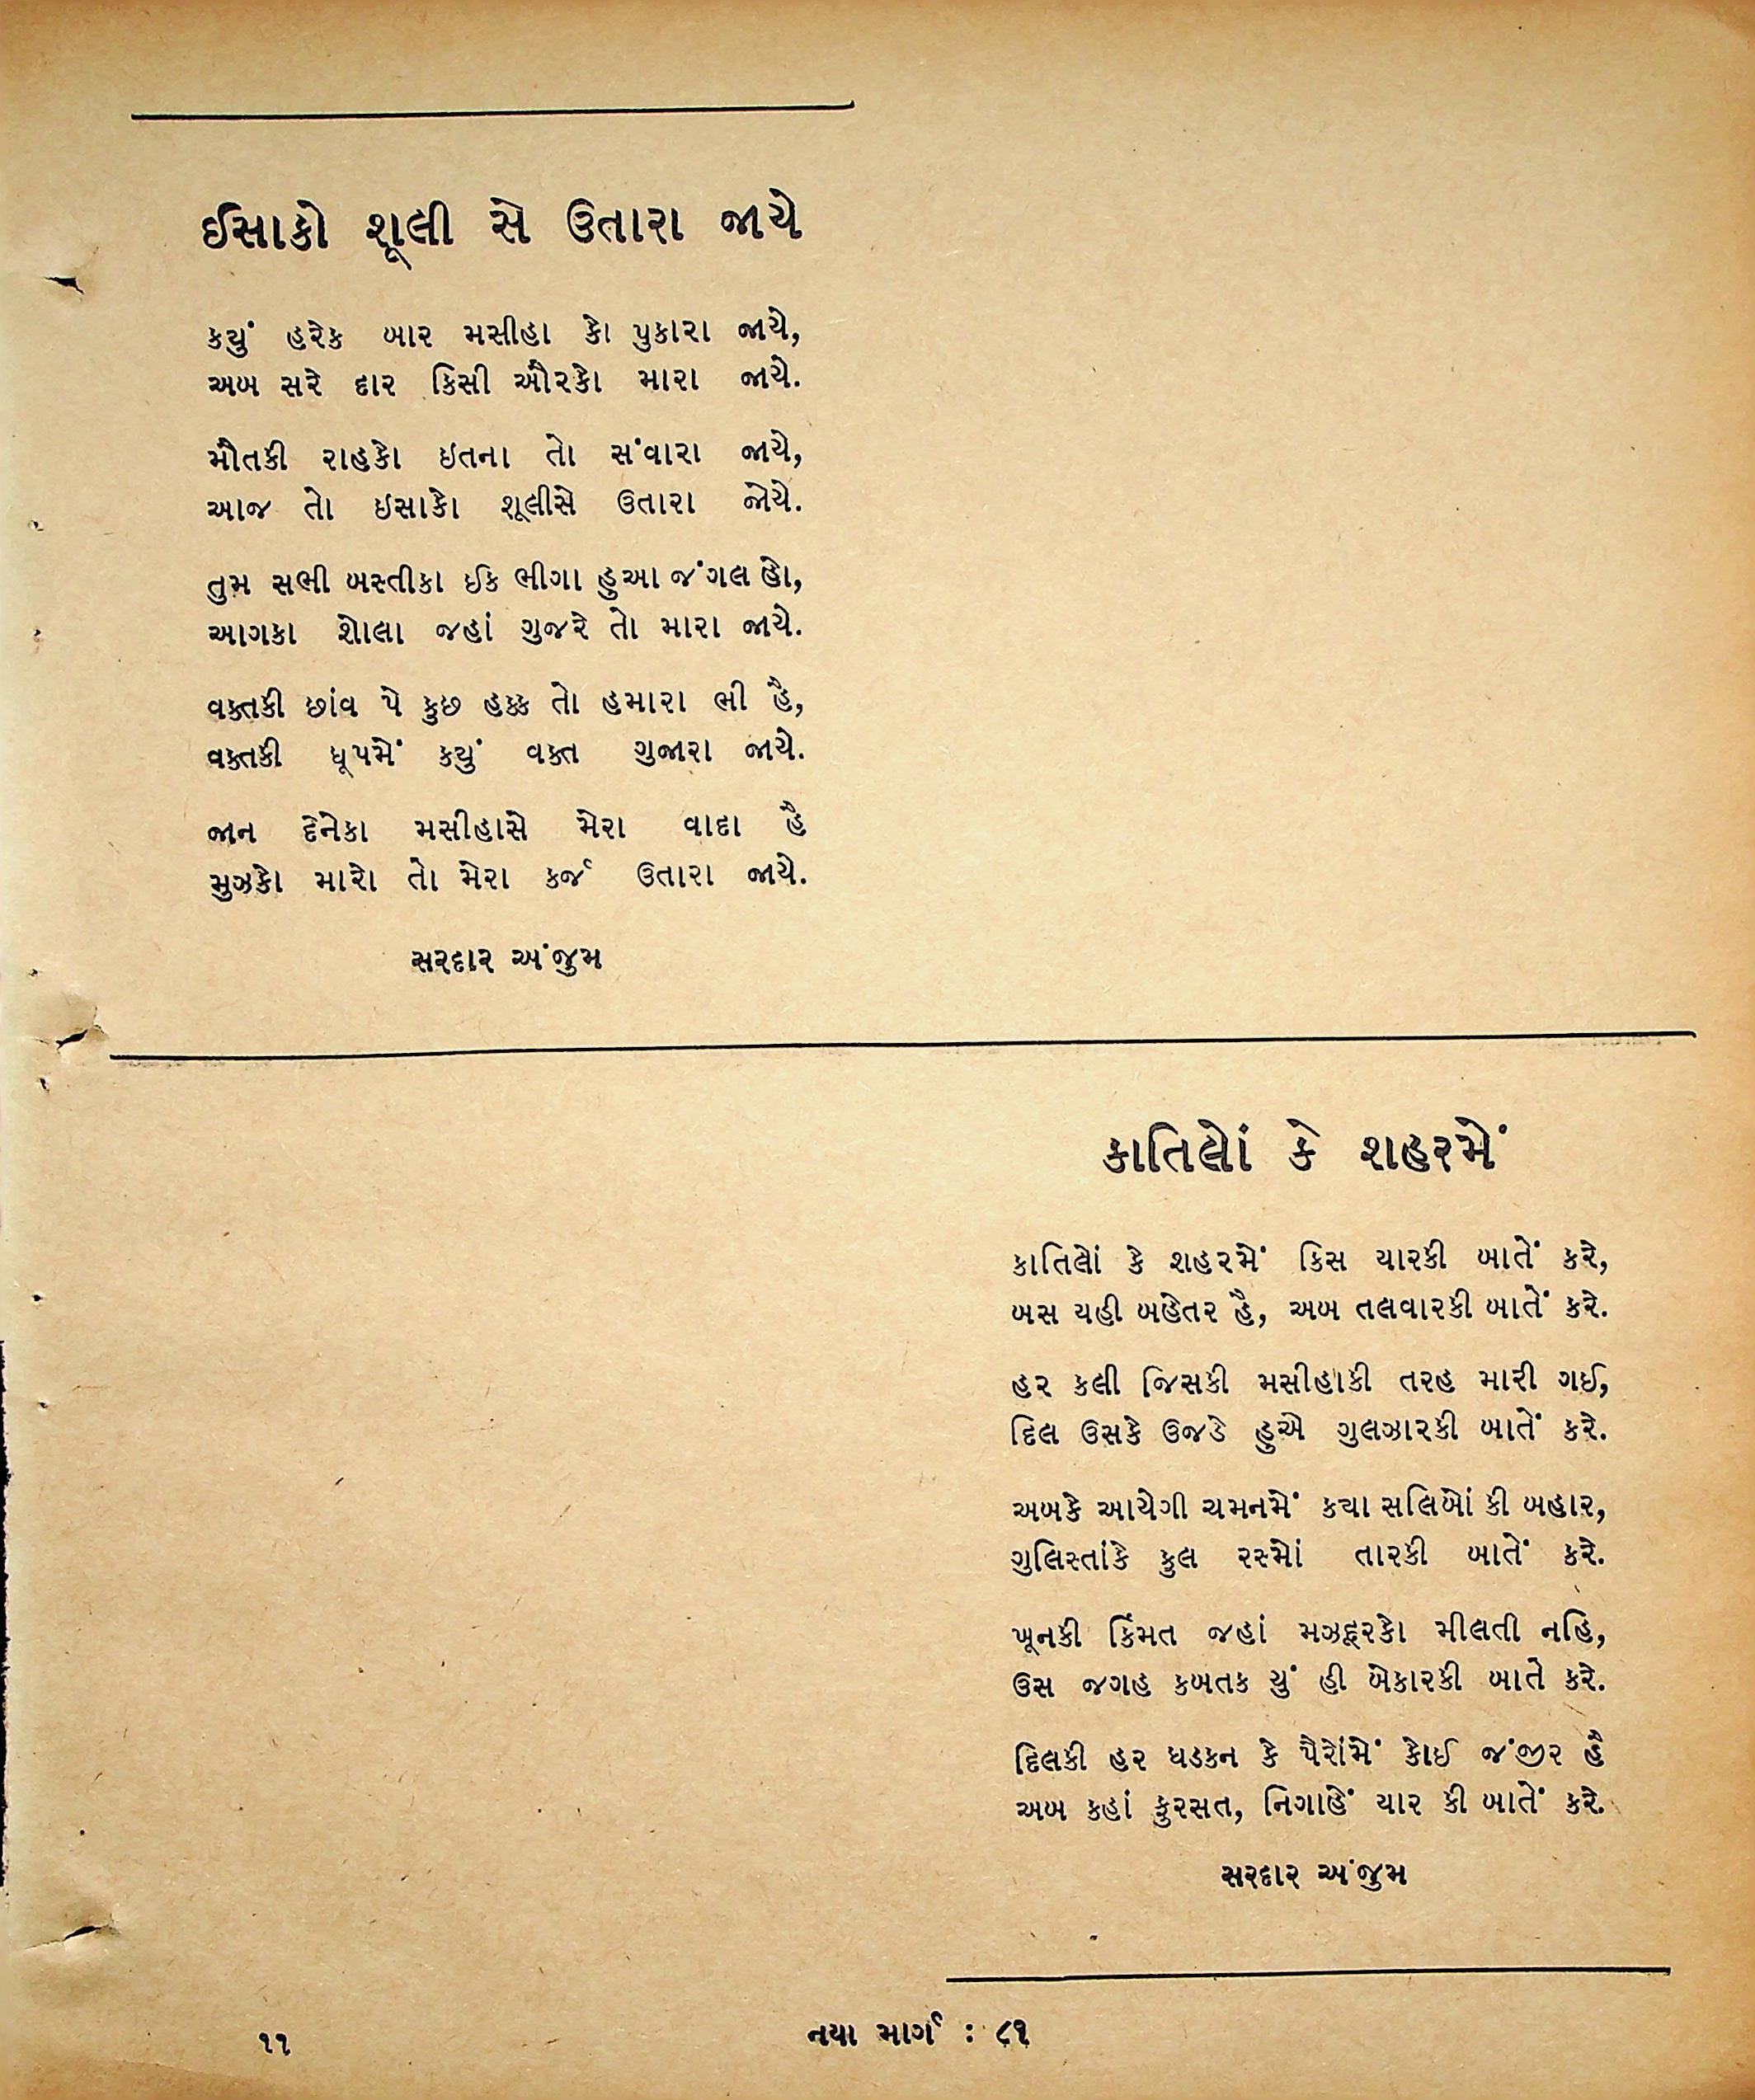 ઈસાકો શૂલી સે ઉતારા જાયે
કયું હરેક બાર મસીહા કો પુકારા જાયે,
અબ સરે દાર કિસી ઔરકો મારા જાયે.
મૌતકી રાહકો ઇતના તો સંવારા જાયે,
આજ તો ઇસાકો શૂલીસે ઉતારા જાયે.
તુમ સભી બસ્તીકા ઈક ભીગા હુઆ જંગલ હો,
આગકા શોલા જહાં ગુજરે તો મારા જાયે.
વક્તકી છાંવ પે કુછ હક્ક તો હમારા ભી હૈ,
વક્તકી ધૂપમેં કયું વક્ત ગુજારા જાયે.
જાન દેનેકા મસીહાસે મેરા વાદા હૈ
મુઝકો મારો તો મેરા કર્જ ઉતારા જાયે.
સરદાર અંજુમ
કાતિલોં કે શહરમેં
કાતિલોં કે શહરમેં કિસ યારકી બાતેં કરે,
બસ યહી બહેતર હૈ, અબ તલવારકી બાતેં કરે.
હર કલી જિસકી મસીહાકી તરહ મારી ગઈ,
દિલ ઉસકે ઉજડે હુએ ગુલઝારકી બાતેં કરે.
અબકે આયેગી ચમનમેં કયા સલિબોં કી બહાર,
ગુલિસ્તાંકે કુલ રસ્મોં તારકી બાતેં કરે.
ખૂનકી કિંમત જહાં મઝદૂરકો મીલતી નહિ,
ઉસ જગહ કબતક યું હી બેકારકી બાતે કરે.
દિલકી હર ધડકન કે પૈરોંમેં કોઈ જંજીર હૈ
અબ કહાં ફુરસત, નિગાહેં યાર કી બાતેં કરે.
સરદાર અંજુમ
૧૧
નયા માર્ગ : ૮૧